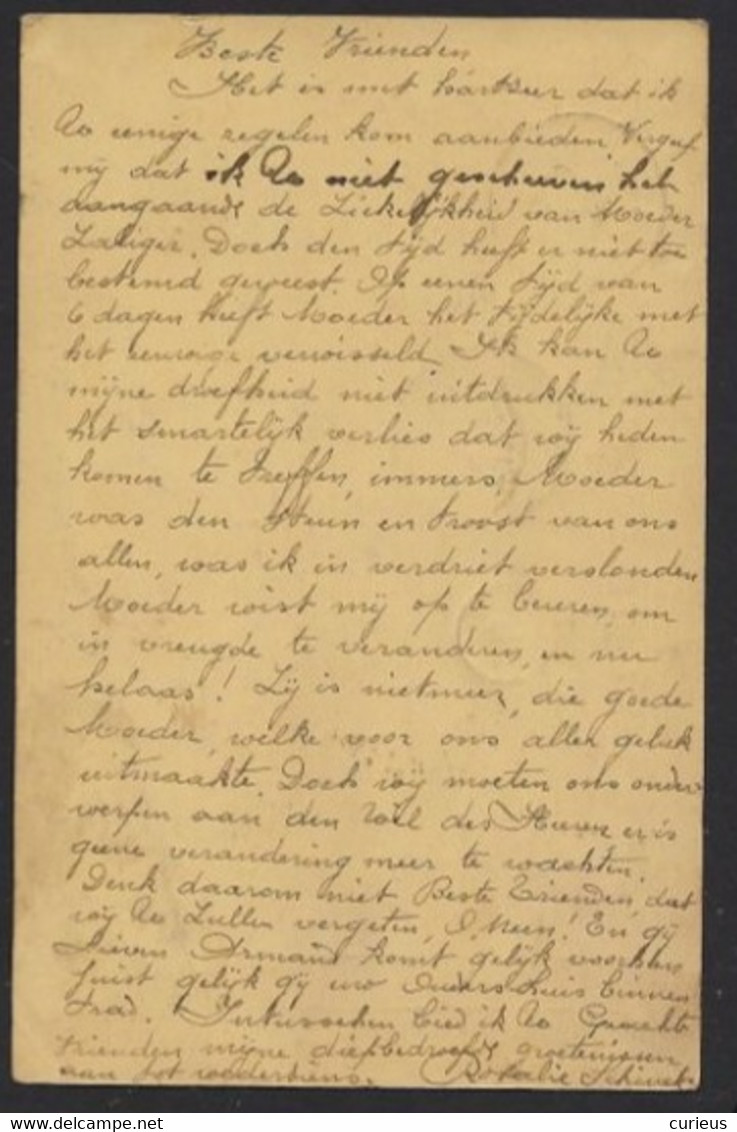 Beste Vrienden
Het is met hartzeer dat ik
U eenige regelen kom aanbieden Vergeef
mij dat ik U niet geschreven heb
aangaande de Ziekelijkheid van Moeder
Zaliger. Doch den tijd heeft er niet toe
bestemd geweest. Op eenen tijd van
6 dagen heeft Moeder het tijdelijke met
het eeuwige verwisseld. Ik kan U
mijne droefheid niet uitdrukken met
het smartelijk verlies dat wij heden
komen te treffen, immers, Moeder
was den steun en troost van ons
allen, was ik in verdriet verslonden
Moeder wist mij op te beuren, om
in vreugde te veranderen, en nu
helaas! Zij is nietmeer, die goede
Moeder, welke voor ons aller geluk
uitmaakte. Doch wij moeten ons onder
werpen aan den Wil des Heeren er is
geene verandering meer te wachten.
Denk daarom niet Beste Vrienden, dat
wij U Zullen vergeten, O Neen! En gij
Lieven Armand komt gelijk voorheen
juist gelijk gij uw Ouders huis binnen
trad. Intusschen bied ik U Geachte
Vrienden mijne diepbedroefde groetenissen
aan tot wederziens. Rosalie